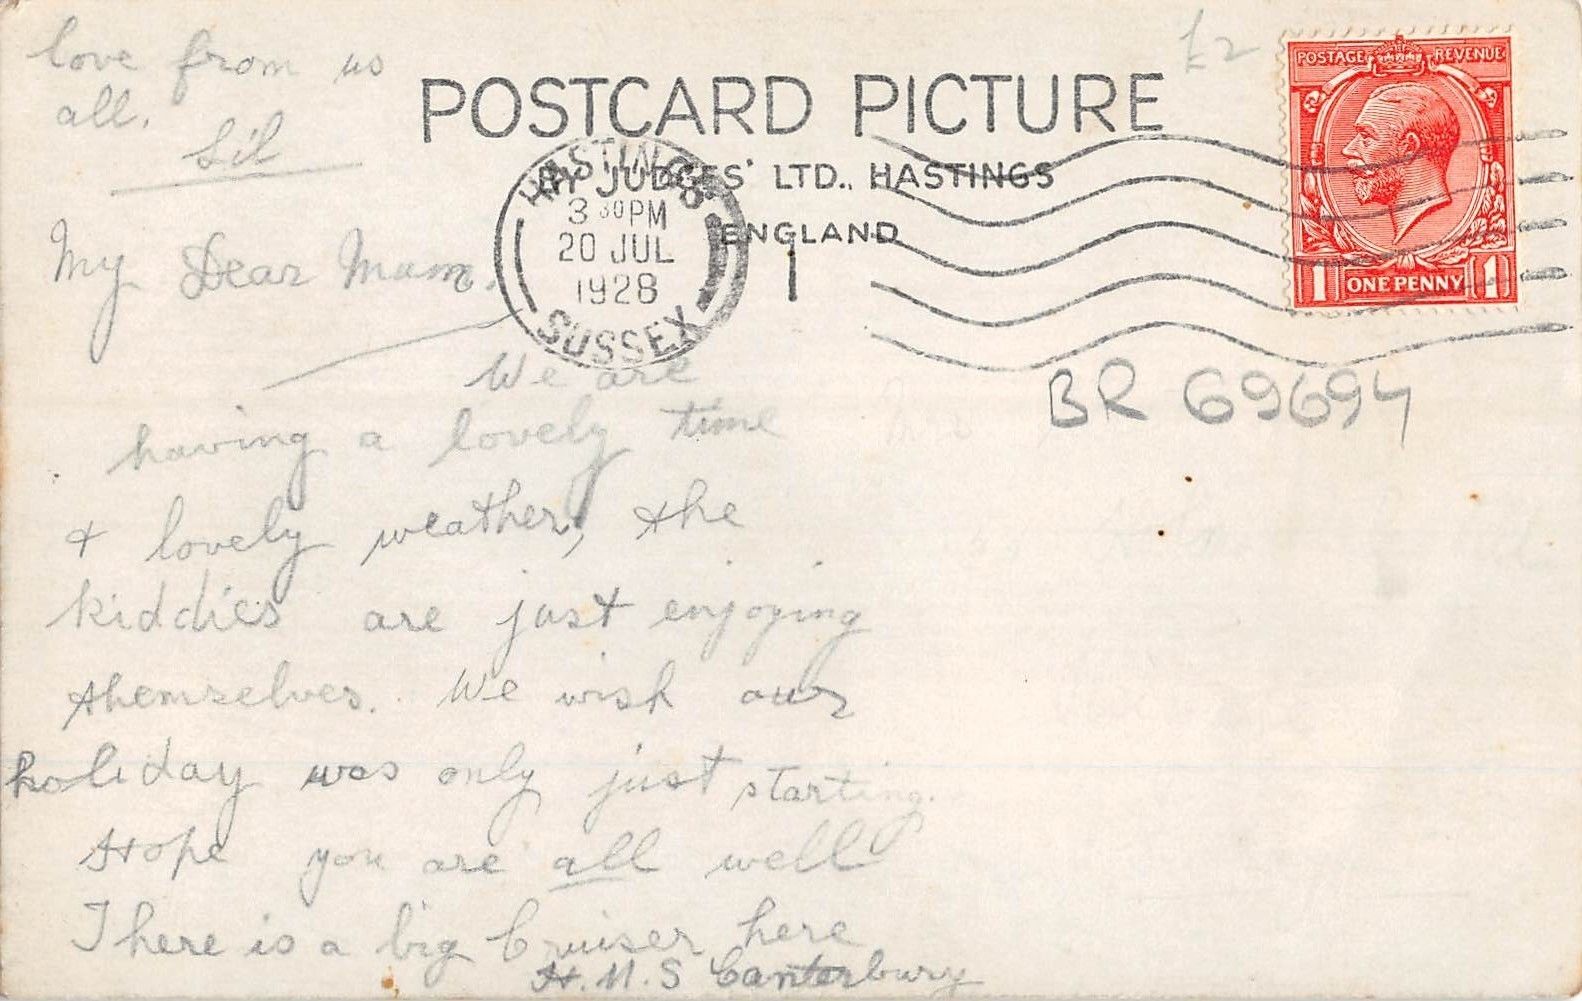 love from us
all.
Lil
£2
POSTCARD PICTURE
BY JUDGES' LTD., HASTINGS
ENGLAND
1
HASTINGS
3 30 PM
20 JUL
1928
SUSSEX
POSTAGE REVENUE
1 ONE PENNY 1
BR 69694
My Dear Mum.
We are
having a lovely time
+ lovely weather, the
kiddies are just enjoying
themselves. We wish our
holiday was only just starting.
Hope you are all well
There is a big Cruiser here
H.M.S Canterbury